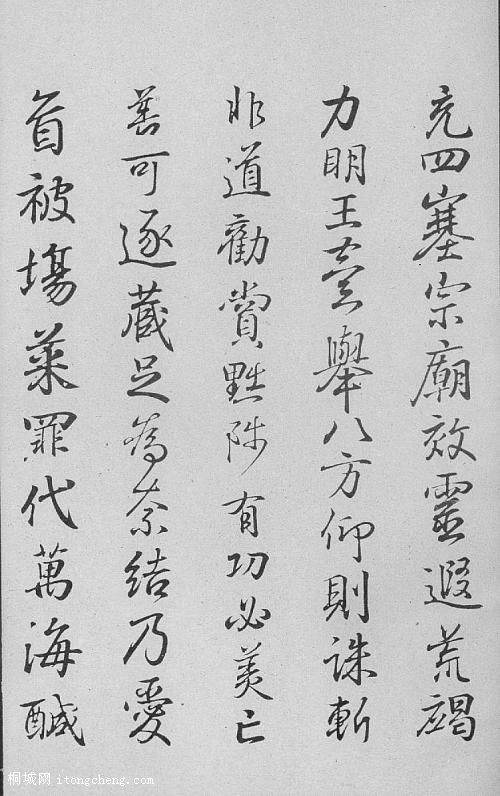 充四塞宗廟效靈遐荒竭
力明王舉八方仰則誅斬
非道勸賞黜陟有功必美亡
善可逐藏足為奈結乃愛
首被塲菜罪代萬海醎
桐城网 itongcheng.com